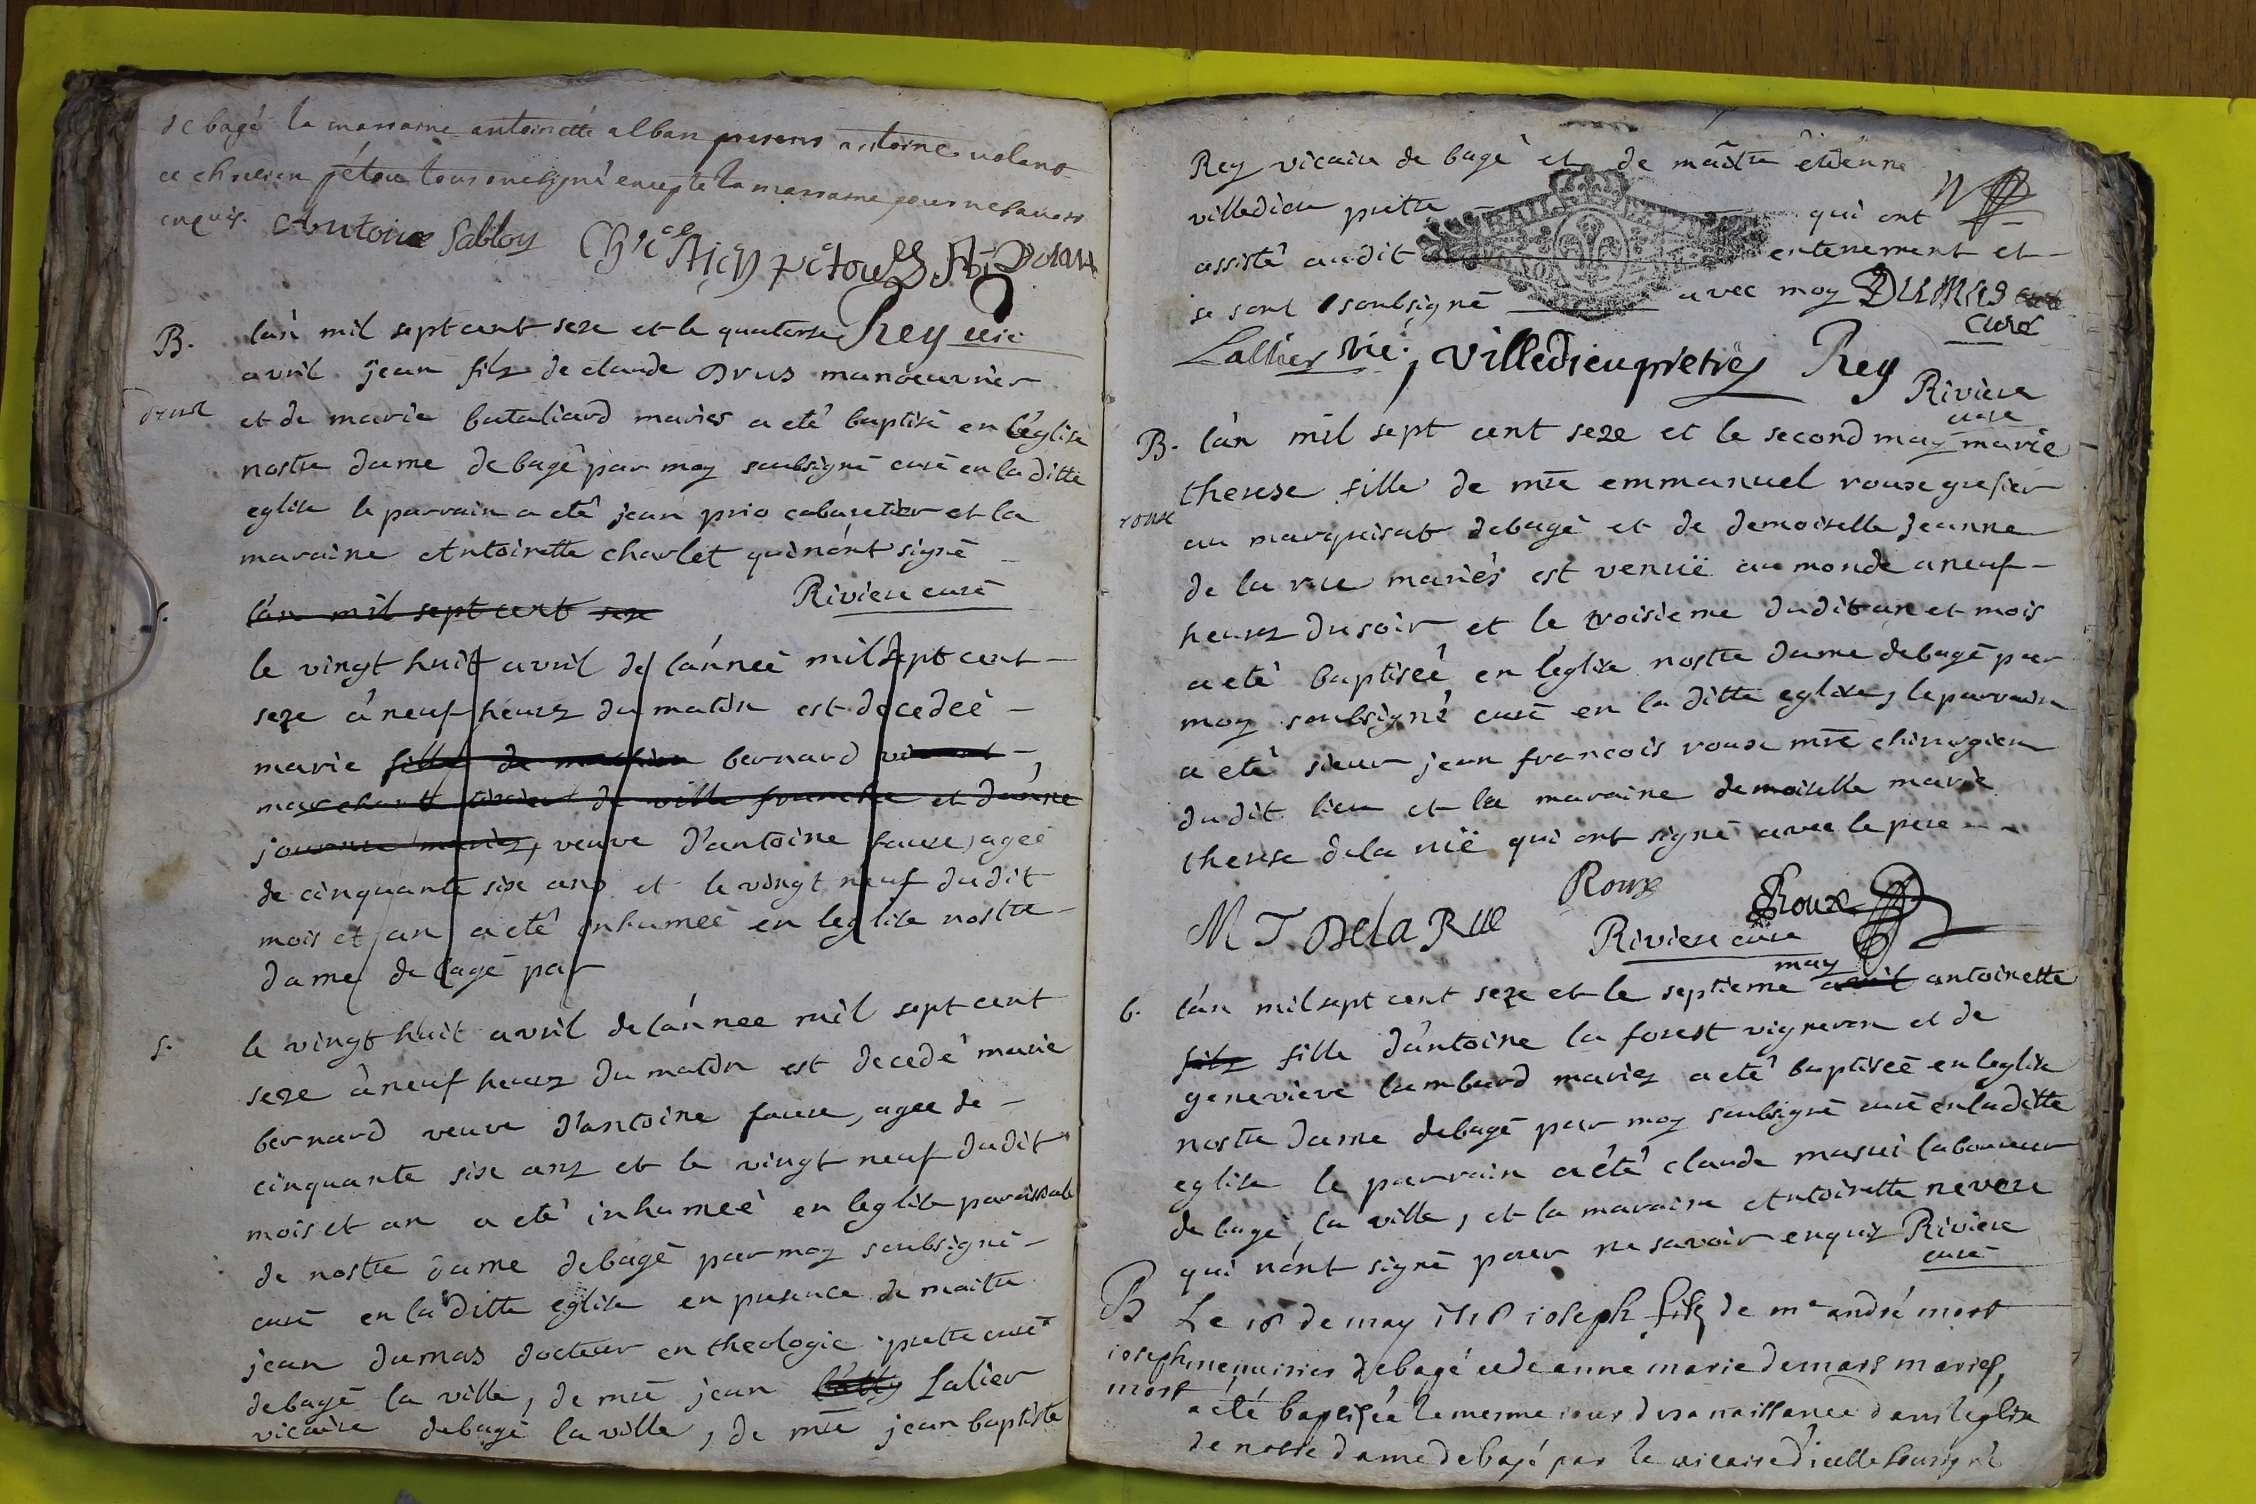 de bagé la marrame antoinette alban presens antoine volant
et chretien pétou tous ont signé excepte la marrame pour ne savoir
enquis. Antoine Sabloy Chretien petoux Ant Volant
Rey vic
B. lan mil sept cent seze et le quatorze
avril jean filz de claude Drus manoeuvrier
et de marie bataliard mariés a eté baptisé en l'église
nostre dame de bagé par moy soubsigné curé en la ditte
eglise le parrain a eté jean prio cabaretier et la
maraine Antoinette charlet qui n'ont signé
Riviere curé
s. l'an mil sept cent seze
le vingt huit avril de l'anneé mil sept cent
seze á neuf heurez du matin est decedeé
marie fille de mathieu bernard
marchant de ville franche et d'anne
mariez, veuve d'antoine faure, ageé
de cinquante six ans et le vingt neuf dudit
mois et an a eté inhumeé en leglise nostre
dame de bagé par
s. le vingt huit avril de l'annee mil sept cent
seze á neuf heurez du matin est decedé marie
bernard veuve d'antoine faure, agee de
cinquante six anz et le vingt neuf dudit
mois et an a eté inhumeé en leglise paroissiale
de nostre dame de bagé par moy soubsigné
curé en la ditte eglise en presence de maitre
jean dumas docteur en theologie prettre curé
de bagé la ville, de mre jean Lalier
vicaire de bagé la ville, de mre jean baptiste
Rey vicaire de bagé et de maitre étienne
villedieu prettre qui ont
assisté audit enterrement et
se sont soubsigné avec moy Dumas
curé
Lallier vic. villedieu prêtre Rey
Riviere
curé
B. l'an mil sept cent seze et le second may marie
therese fille de mre emmanuel roux grefier
roux
au marquisat de bagé et de demoiselle jeanne
de la rue mariés est venuë au monde a neuf
heurez du soir et le troisieme dudit an et mois
a eté baptiseé en l'eglise nostre dame de bagé par
moy soubsigné curé en la ditte eglise, le parrain
a eté sieur jean francois roux mre chirurgien
dudit lieu et la maraine demoiselle marie
therese dela ruë qui ont signé avec le pere
Roux Roux
M T Dela Rue
Riviere curé
may
b. l'an mil sept cent seze et le septieme avril antoinette
filz fille d'antoine la forest vigneron et de
genevieve lambard mariez a eté baptiseé en leglise
nostre dame de bagé par moy soubsigné curé en la ditte
eglise le parrain a été claude masui laboureur
de bagé la ville, et la maraine Antoinette nevere
qui n'ont signé pour ne savoir enquiz Riviere
curé
B Le 18 de may 1716 ioseph filz de me andré mort
ioseph
mort
menuisier de bagé et de anne marie demars mariés,
a été baptisée le mesme iour de sa naissance dans leglise
de nostre dame de bagé par le vicaire d'icelle soussigné